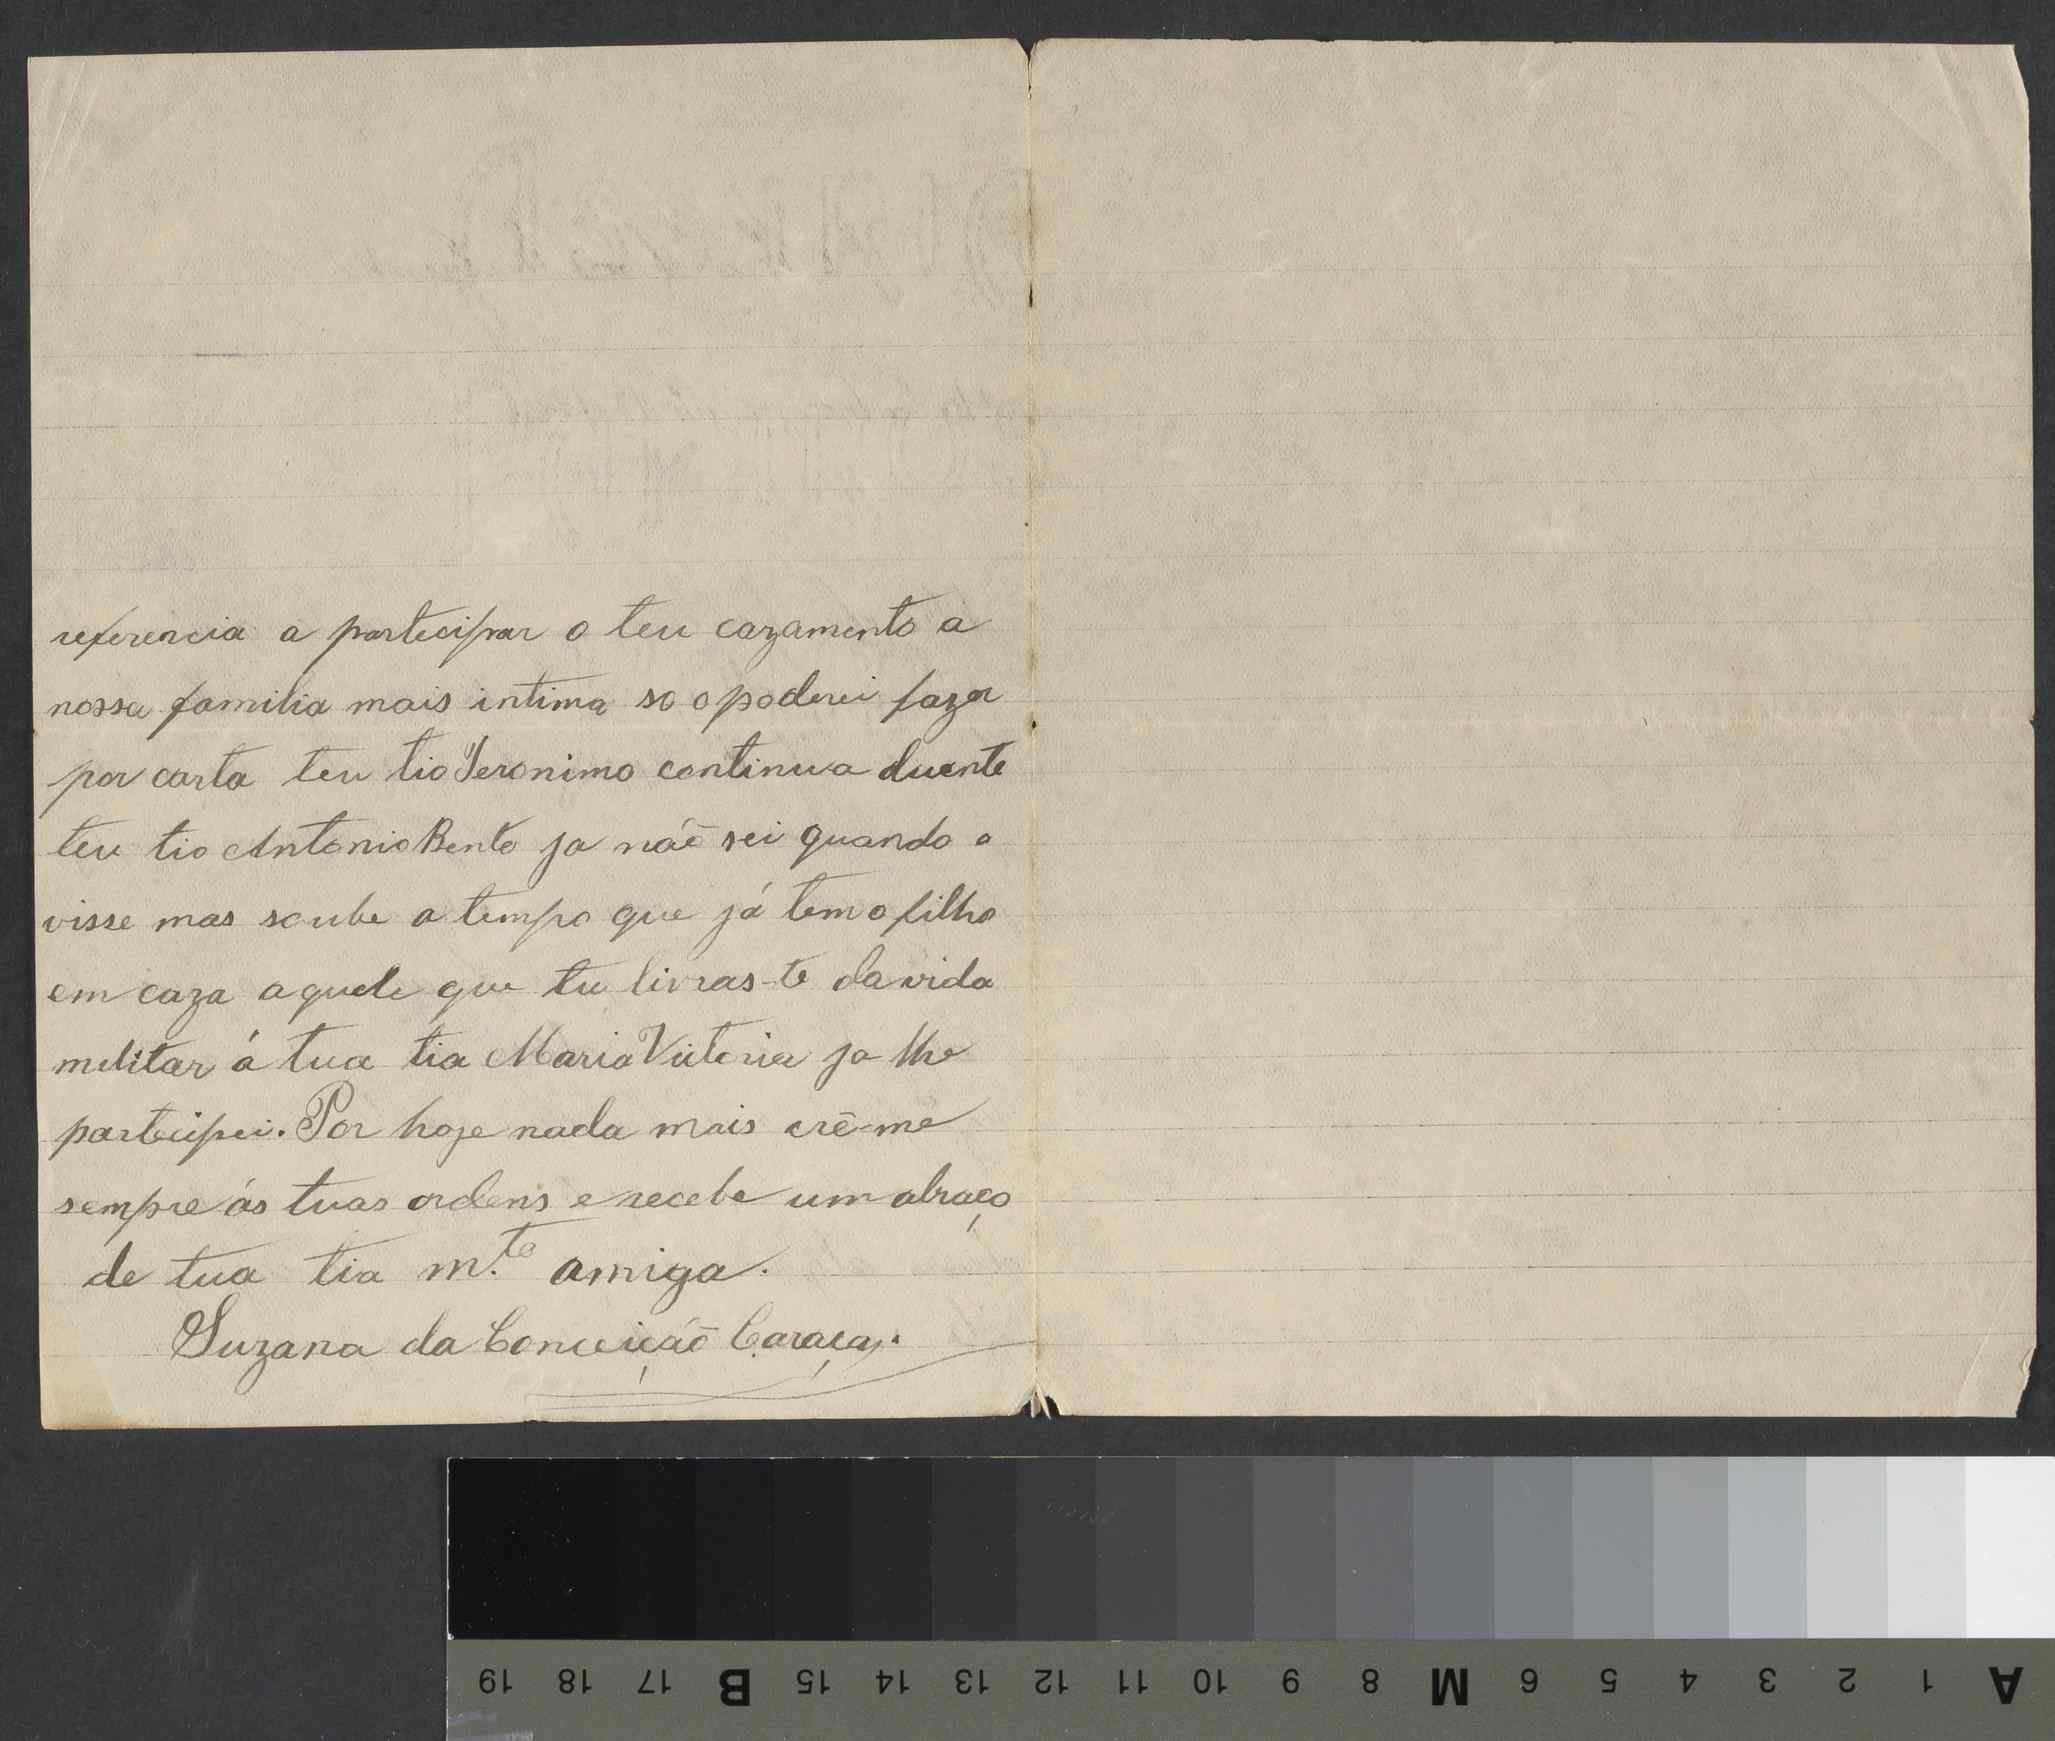 referencia a partecipar o teu cazamento a
nossa familia mais intima so o poderei fazer
por carta teu tio Jeronimo continua duente
teu tio Antonio Bento ja não sei quando o
visse mas soube a tempo que já tem o filho
em caza aquele que tu livras-te da vida
melitar á tua tia Maria Vitoria ja lhe
partecipei. Por hoje nada mais crê-me
sempre ás tuas ordens e recebe um abraço
de tua tia m.ta amiga.
Suzana da Conceição Caraça.
19 18 17 B 15 14 13 12 11 10 9 8 M 6 5 4 3 2 1 A